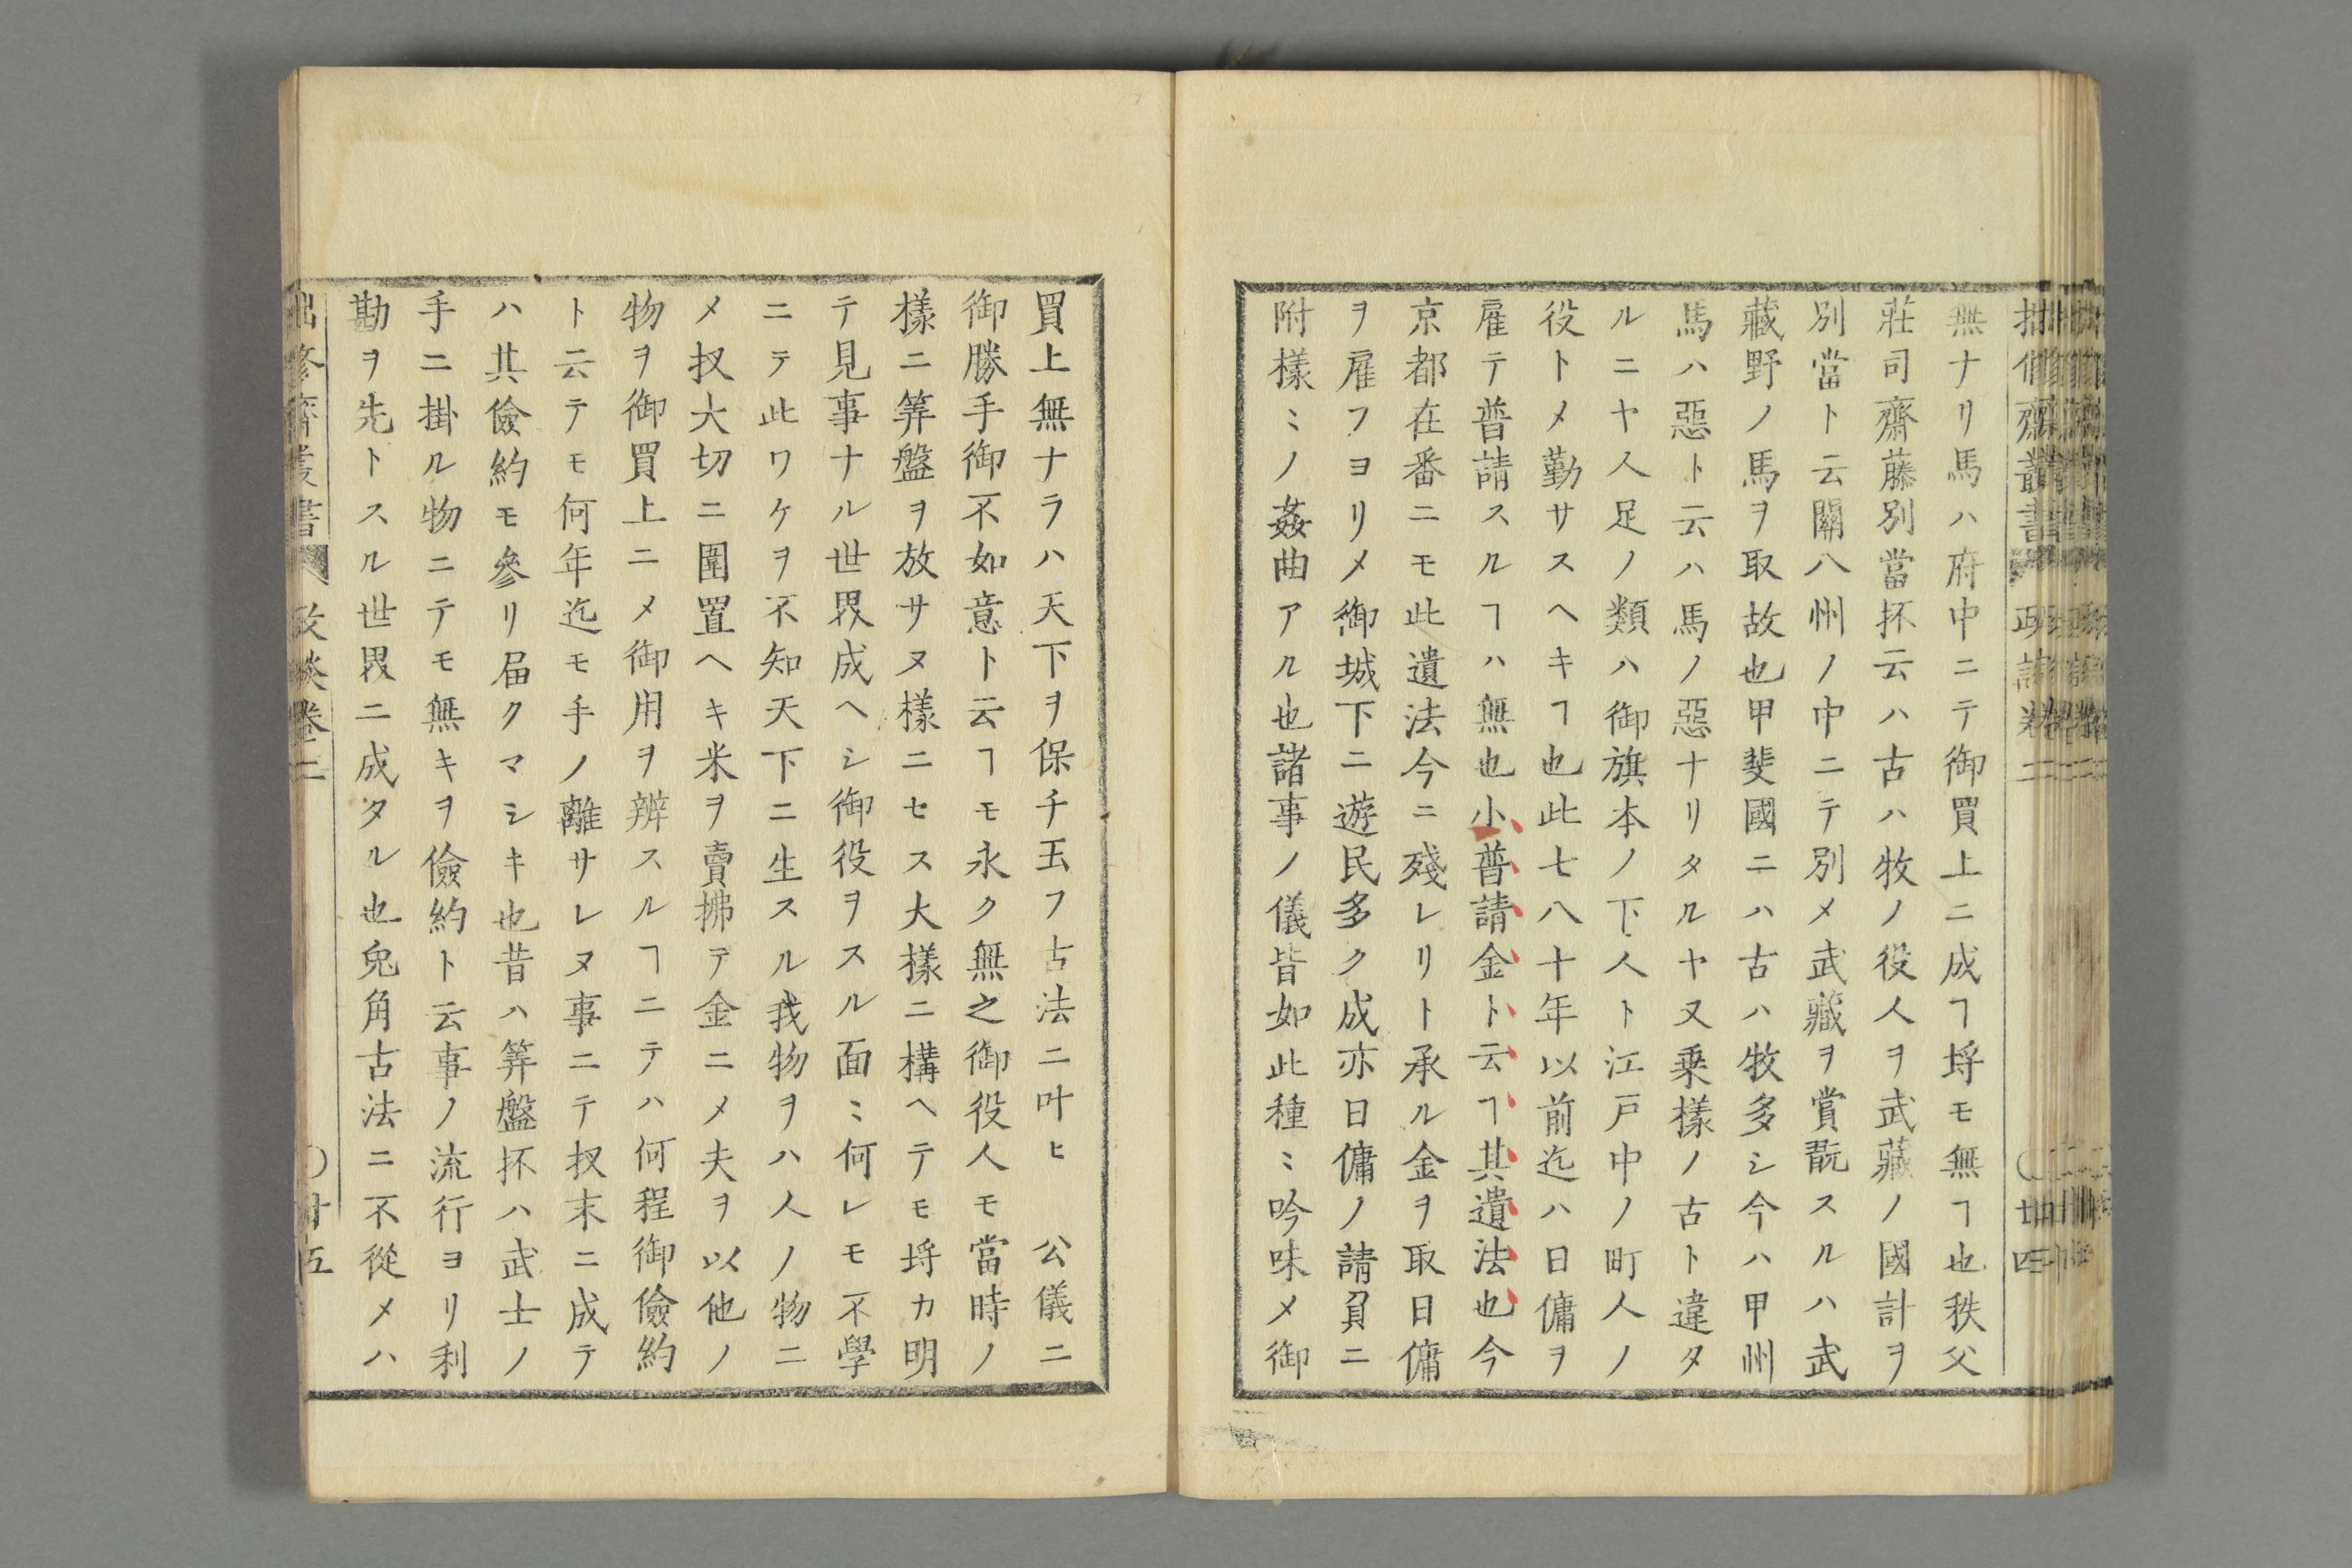 拙修齋叢書 政談卷二 〇廿四
無ナリ馬ハ府中ニテ御買上ニ成ヿ埒モ無ヿ也秩父
莊司齋藤別當抔云ハ古ハ牧ノ役人ヲ武藏ノ國計ヲ
別當ト云關八州ノ中ニテ別メ武藏ヲ賞翫スルハ武
藏野ノ馬ヲ取故也甲斐國ニハ古ハ牧多シ今ハ甲州
馬ハ惡ト云ハ馬ノ惡ナリタルヤ又乗樣ノ古ト違タ
ルニヤ人足ノ類ハ御旗本ノ下人ト江戸中ノ町人ノ
役トメ勤サスヘキヿ也此七八十年以前迄ハ日傭ヲ
雇テ普請スルヿハ無也小普請金ト云ヿ其遺法也今
京都在番ニモ此遺法今ニ殘レリト承ル金ヲ取日傭
ヲ雇フヨリメ御城下ニ遊民多ク成亦日傭ノ請負ニ
附樣ミノ姦曲アル也諸事ノ儀皆如此種ミ吟味メ御
買上無ナラハ天下ヲ保チ玉フ古法ニ叶ヒ　公儀ニ
御勝手御不如意ト云ヿモ永ク無之御役人モ當時ノ
樣ニ筭盤ヲ放サヌ樣ニセス大樣ニ構ヘテモ埒カ明
テ見事ナル世界成ヘシ御役ヲスル面ミ何レモ不學
ニテ此ワケヲ不知天下ニ生スル我物ヲハ人ノ物ニ
メ扠大切ニ圍置ヘキ米ヲ賣拂テ金ニメ夫ヲ以他ノ
物ヲ御買上ニメ御用ヲ辨スルヿニテハ何程御儉約
ト云テモ何年迄モ手ノ離サレヌ事ニテ扠末ニ成テ
ハ其儉約モ參リ届クマシキ也昔ハ筭盤抔ハ武士ノ
手ニ掛ル物ニテモ無キヲ儉約ト云事ノ流行ヨリ利
勘ヲ先トスル世界ニ成タル也兔角古法ニ不從メハ
拙修齋叢書 政談卷二 〇廿五